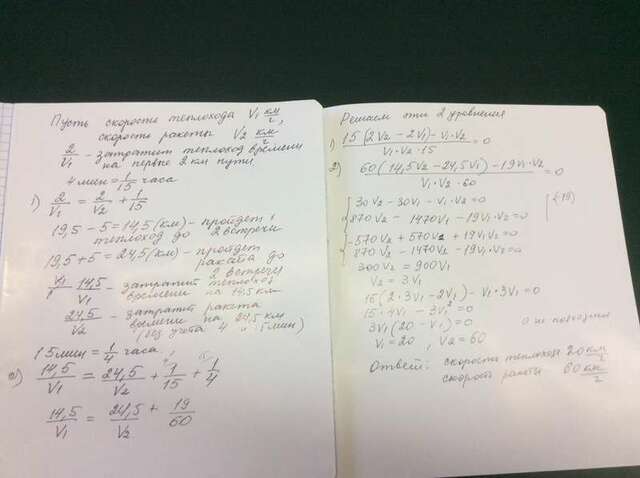 Пусть скорость теплохода V₁ км/ч,
скорость ракеты V₂ км/ч
2/V₁ - затратит теплоход времени
на первые 2 км пути.
4 мин = 1/15 часа
1) 2/V₁ = 2/V₂ + 1/15
19,5 - 5 = 14,5 (км) - пройдет
теплоход до 2 встречи
19,5 + 5 = 24,5 (км) - пройдет
ракета до
2 встречи
14,5/V₁ - затратит теплоход
времени на 14,5 км
24,5/V₂ - затратит ракета
времени на 24,5 км
(без учета 4 и 15 мин)
15 мин = 1/4 часа,
2) 14,5/V₁ = 24,5/V₂ + 1/15 + 1/4
14,5/V₁ = 24,5/V₂ + 19/60
Решаем эти 2 уравнения
1) (15(2V₂ - 2V₁) - V₁·V₂)/(V₁·V₂·15) = 0
2) (60(14,5V₂ - 24,5V₁) - 19V₁·V₂)/(V₁V₂·60) = 0
{30V₂ - 30V₁ - V₁·V₂ = 0 |(-19)
870V₂ - 1470V₁ - 19V₁V₂ = 0
{-570V₂ + 570V₁ + 19V₁V₂ = 0
870V₂ - 1470V₁ - 19V₁V₂ = 0
300V₂ = 900V₁
V₂ = 3V₁
15(2·3V₁ - 2V₁) - V₁·3V₁ = 0
15·4V₁ - 3V₁² = 0
3V₁(20 - V₁) = 0 0 не подходит
V₁ = 20, V₂ = 60
Ответ: скорость теплохода 20 км/ч
скорость ракеты 60 км/ч